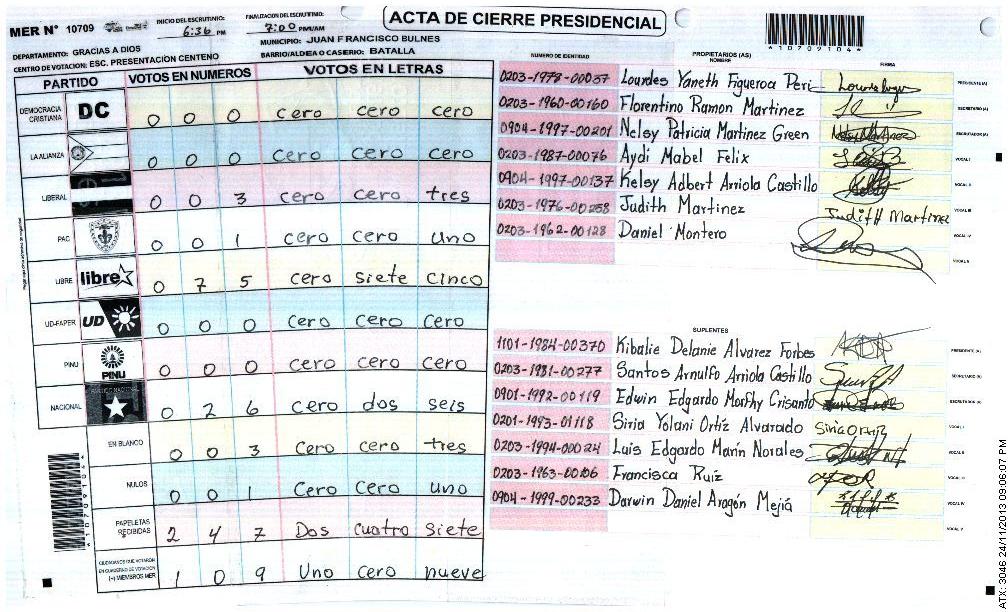 MER N° 10709
INICIO DEL ESCRUTINIO: 6:36 PM
FINALIZACION DEL ESCRUTINIO: 7:00 PM/AM
ACTA DE CIERRE PRESIDENCIAL
*10709104*
DEPARTAMENTO: GRACIAS A DIOS
MUNICIPIO: JUAN FRANCISCO BULNES
CENTRO DE VOTACION: ESC. PRESENTACIÓN CENTENO
BARRIO/ALDEA O CASERIO: BATALLA
PARTIDO VOTOS EN NUMEROS VOTOS EN LETRAS
DEMOCRACIA CRISTIANA DC 0 0 0 cero cero cero
LA ALIANZA 0 0 0 cero cero cero
LIBERAL 0 0 3 cero cero tres
PAC 0 0 1 cero cero uno
LIBRE libre 0 7 5 cero siete cinco
UD-FAPER UD 0 0 0 cero cero cero
PINU PINU 0 0 0 cero cero cero
NACIONAL 0 2 6 cero dos seis
EN BLANCO 0 0 3 cero cero tres
NULOS 0 0 1 cero cero uno
PAPELETAS RECIBIDAS 2 4 7 Dos cuatro siete
CIUDADANOS QUE VOTARON EN CUADERNO DE VOTACION (+) MIEMBROS MER 1 0 9 Uno cero nueve
*10709104*
NUMERO DE IDENTIDAD PROPIETARIOS (AS) NOMBRE FIRMA
0203-1978-00037 Lourdes Yaneth Figueroa Peri PRESIDENTE (A)
0203-1960-00160 Florentino Ramon Martinez SECRETARIO (A)
0904-1997-00201 Nelsy Patricia Martinez Green ESCRUTADOR (A)
0203-1987-00076 Aydi Mabel Felix VOCAL I
0904-1997-00137 Kelsy Adbert Arriola Castillo VOCAL II
0203-1976-00258 Judith Martinez Judith Martinez VOCAL III
0203-1962-00128 Daniel Montero VOCAL IV
VOCAL V
SUPLENTES
1101-1984-00370 Kibalie Delanie Alvarez Forbes PRESIDENTE (A)
0203-1981-00277 Santos Arnulfo Arriola Castillo SECRETARIO (A)
0901-1992-00119 Edwin Edgardo Morfhy Crisanto ESCRUTADOR (A)
0201-1993-01118 Siria Yolani Ortíz Alvarado Siria Ortiz VOCAL I
0203-1994-00024 Luis Edgardo Marín Norales VOCAL II
0203-1963-00106 Francisca Ruiz VOCAL III
0904-1999-00233 Darwin Daniel Aragón Mejiá VOCAL IV
VOCAL V
ATX: 3046 24/11/2013 09:06:07 PM